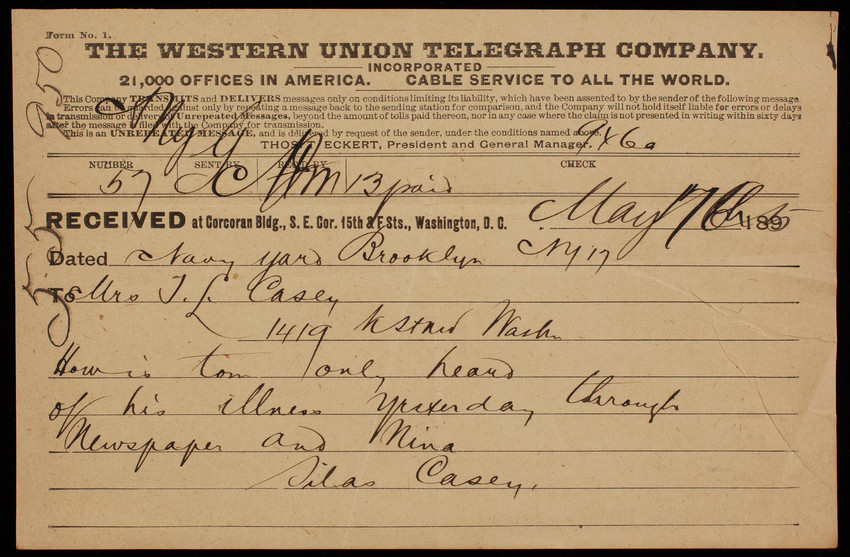 Form No. 1.
THE WESTERN UNION TELEGRAPH COMPANY.
INCORPORATED
21,000 OFFICES IN AMERICA. CABLE SERVICE TO ALL THE WORLD.
This Company TRANSMITS and DELIVERS messages only on conditions limiting its liability, which have been assented to by the sender of the following message.
Errors can be guarded against only by repeating a message back to the sending station for comparison, and the Company will not hold itself liable for errors or delays
in transmission or delivery of Unrepeated Messages, beyond the amount of tolls paid thereon, nor in any case where the claim is not presented in writing within sixty days
after the message is filed with the Company for transmission.
This is an UNREPEATED MESSAGE, and is delivered by request of the sender, under the conditions named above.
THOS. T. ECKERT, President and General Manager.
NUMBER SENT BY REC'D BY CHECK
57 13 paid
RECEIVED at Corcoran Bldg., S. E. Cor. 15th & F Sts., Washington, D. C. May 189
Dated Navy yard Brooklyn NY 17
To Mrs T. L. Casey
1419 K St NW Washn
How is tom only heard
of his illness yesterday through
Newspaper and Nina
Silas Casey.
550
950